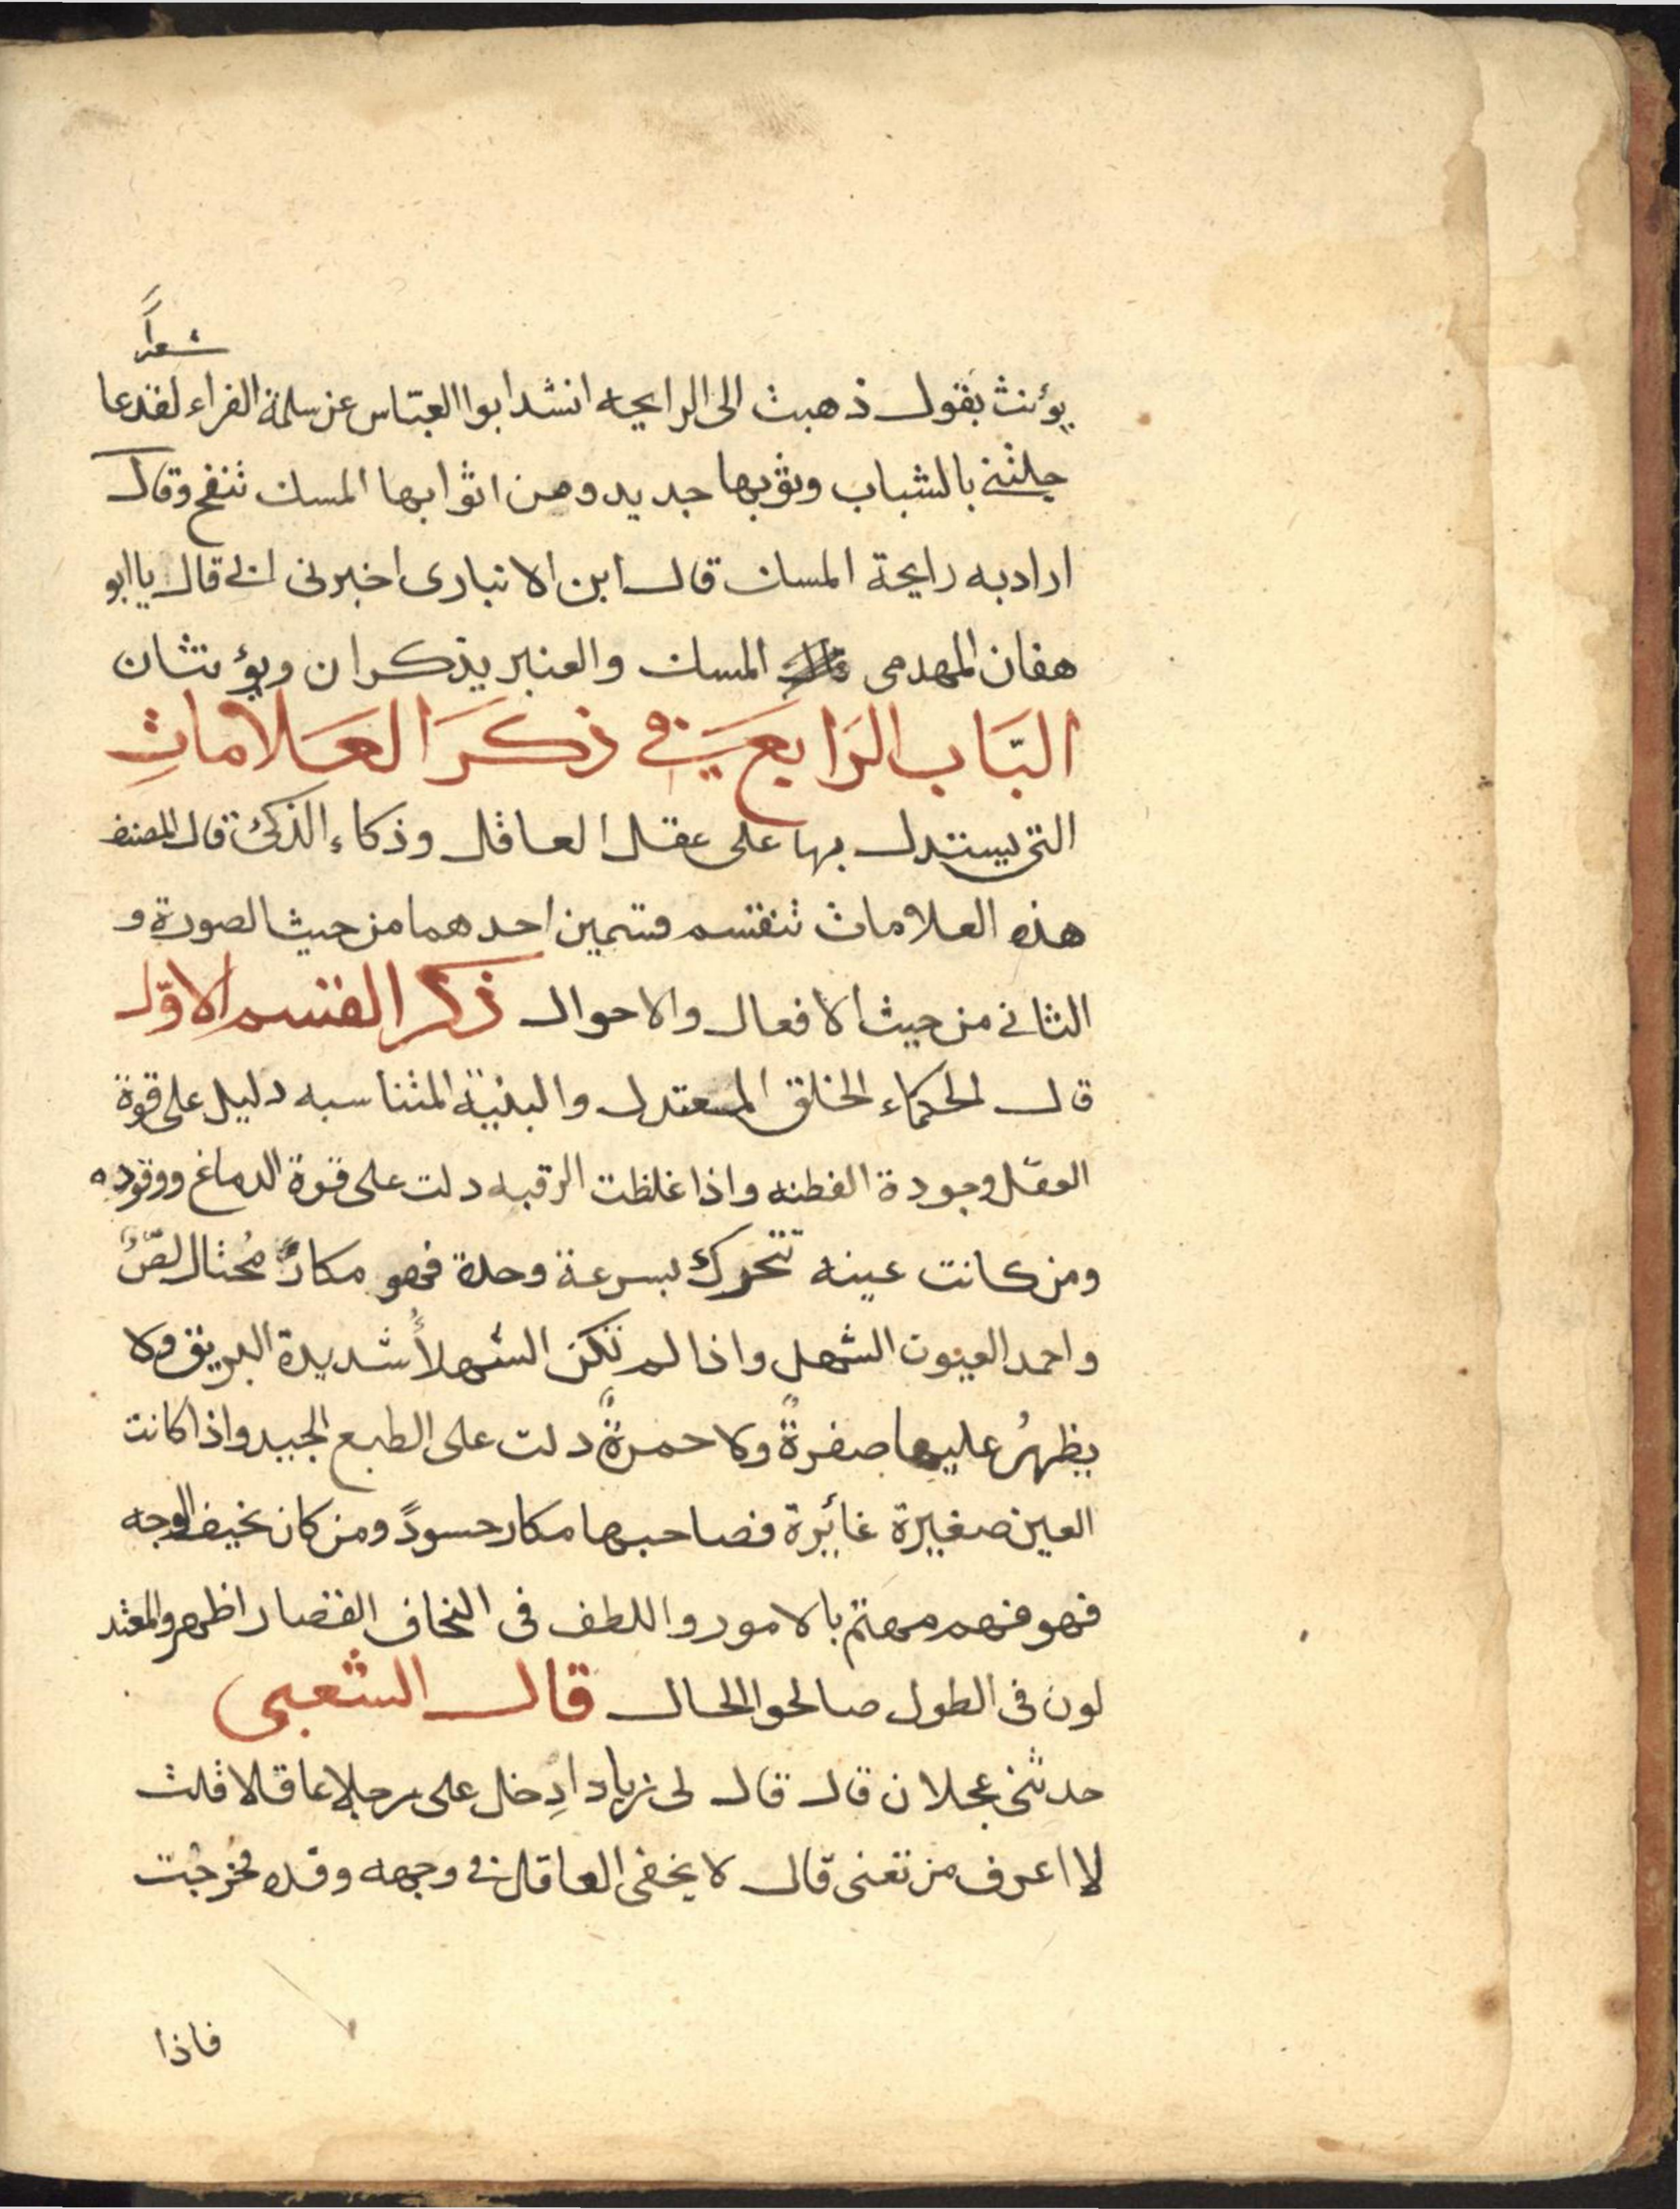 شعراً
يؤنث يقول ذهبت الى الرايحه انشد ابوا العباس عن سلمة الفراء لقد عا
جلتني بالشباب وثوبها جديد ومن اثوابها المسك تنفح وقال
اراد به رايحة المسك قال ابن الانبارى اخبرنى ابى قال يا ابو
هفان المهدمى المسك والعنبر يذكران ويؤنثان
البَاب الرَابع في ذكرَ العَلاماتِ
التى يستدل بها على عقل العاقل وذكاء الذكىّ قال المصنف
هذه العلامات تنقسم قسمين احدهما من حيث الصورة و
الثانى من حيث الافعال والاحوال ذكر القسم الاوّل
قال الحكماء الخلق المعتدل والبنية المتناسبه دليل على قوة
العقل وجودة الفطنه واذا غلظت الرقبه دلت على قوة الدماغ ووقوده
ومن كانت عينه تتحرك بسرعة وحدة فهو مكارٌ مُحتال لصٌ
واحمد العيون الشهل واذا لم تكن الشهلأُ شديدة البريق ولا
يظهرُ عليها صفرةً ولا حمرةً دلت على الطبع الجيد واذا كانت
العين صغيرة غائيرة فصاحبها مكار حسودً ومن كان نحيف الوجه
فهو فهم مهتم بالامور واللطف فى النخاف القصار اظهر والمعتد
لون فى الطول صالحوا الحال قال الشعبى
حدثنى عجلان قال قال لى زياد ادِخل على رجلا عاقلا قلت
لا اعرف من تعنى قال لا يخفى العاقل فى وجهه وقده فخرجُت
فاذا